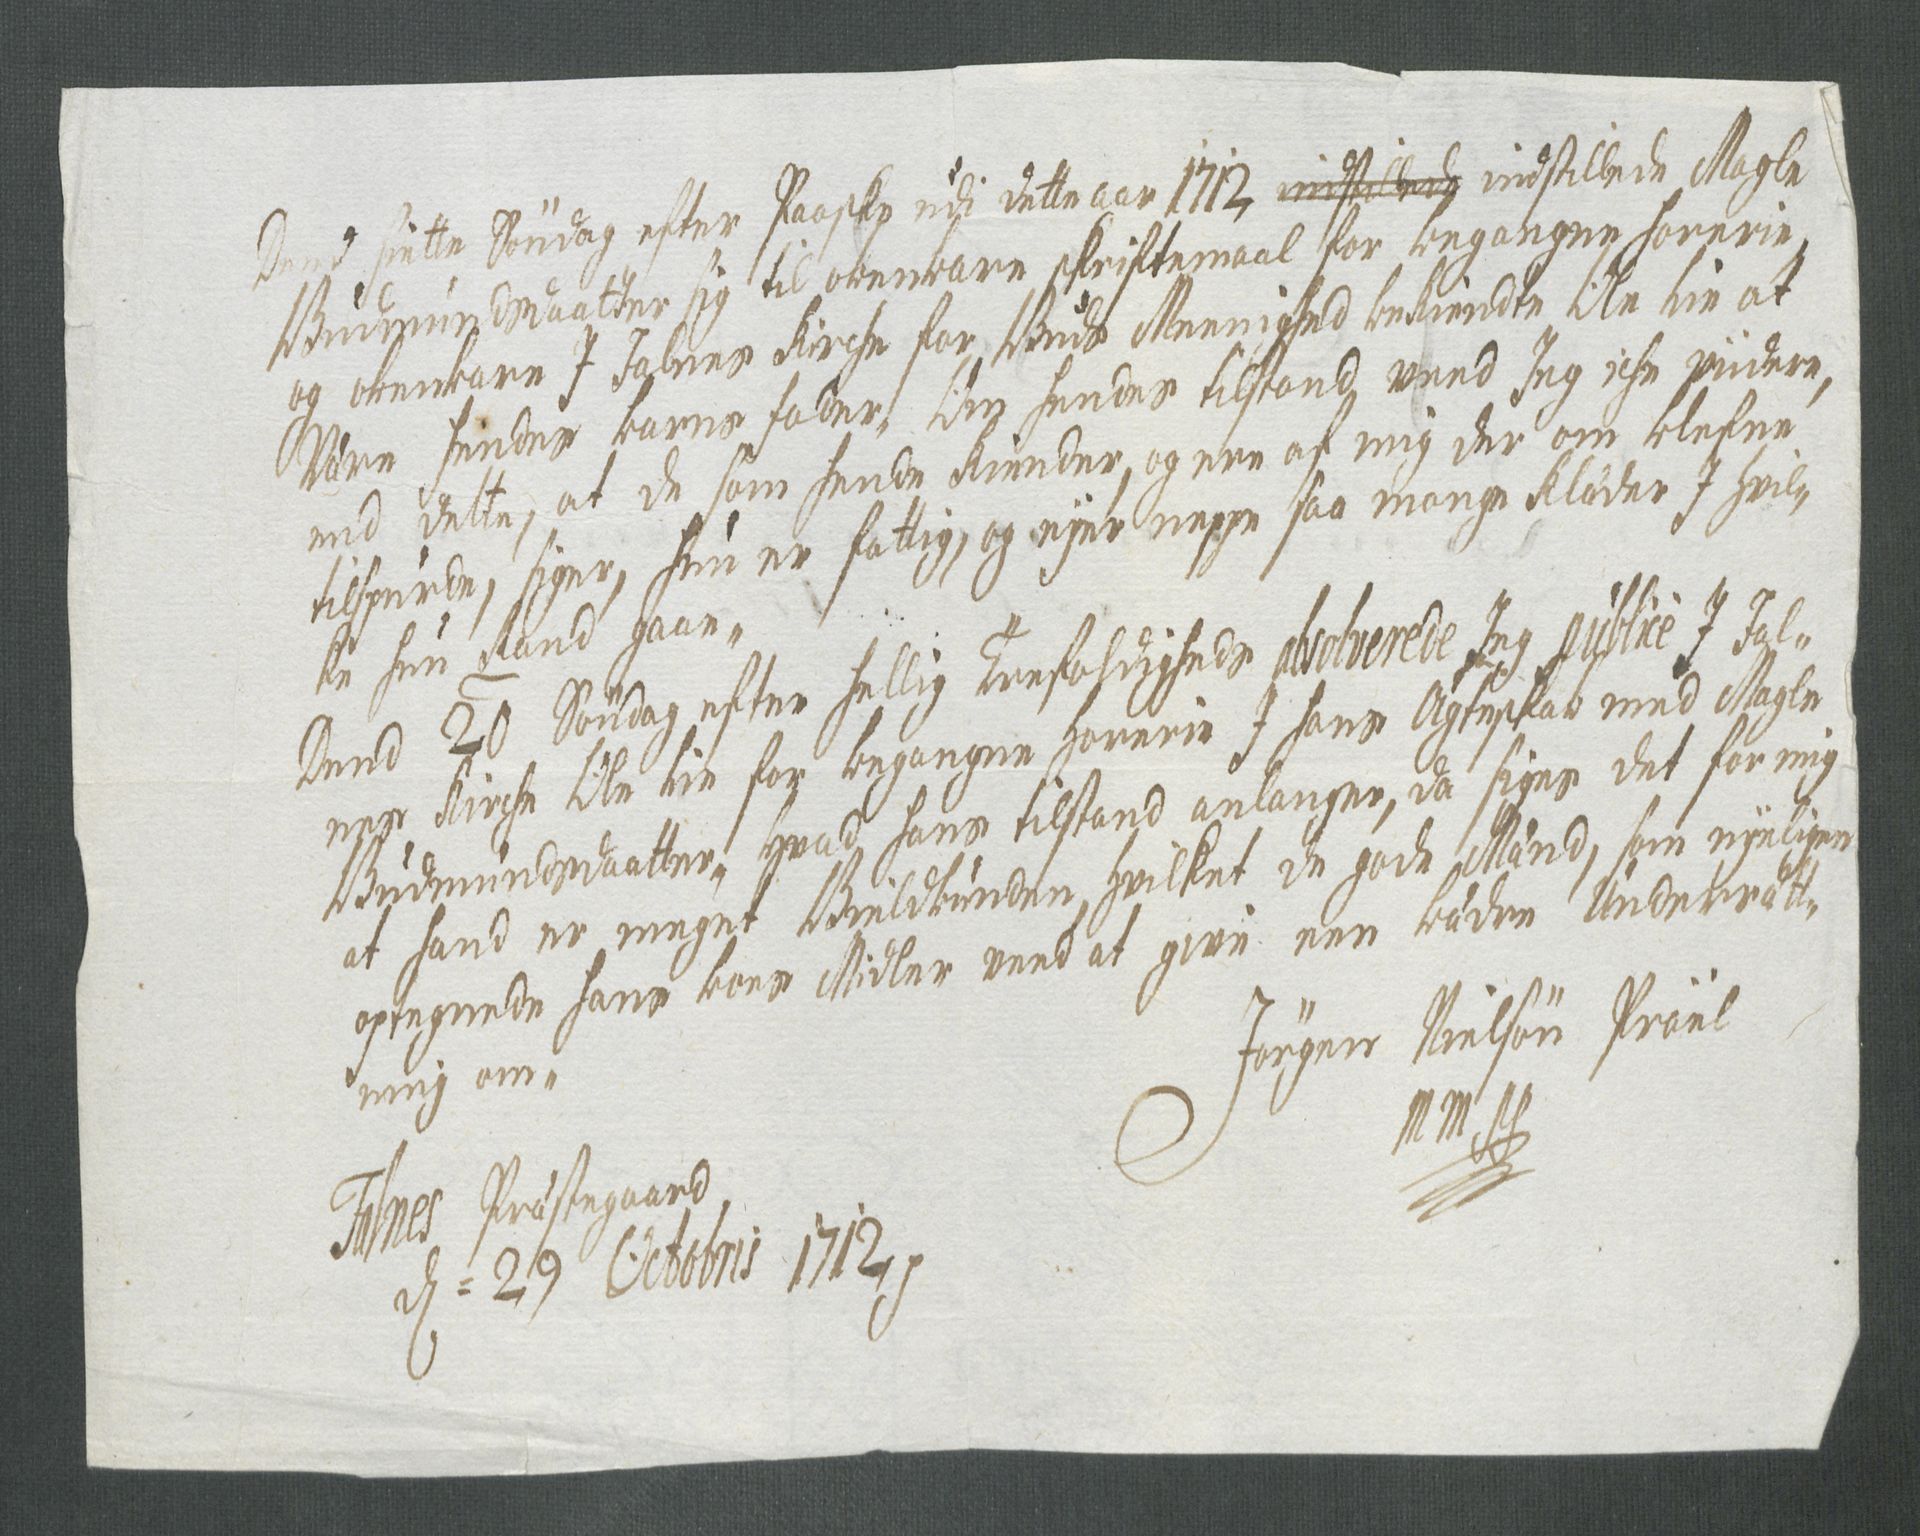 Dend siette Söndag efter Paaske udi dette aar 1712 indstillede indstillede Magle
Gudmundsdaatter sig til obenbare skriftemaal for begangne horerie,
og obenbare J Falnes Kirche for Guds Meenighed bekiendte Ole Lie at
Väre hendes barns fader. Om hendes tilstand veed Jeg iche viidere,
end dette, at de som hende Kiender, og ere af mig der om blefne
tilspurde, siger, hun er fattig, og ejer neppe saa mange Kläder J hvil„
ke hun kand gaae„
Dend 20 Söndag efter hellig Trefoldigheds absolverede Jeg publicè J Fal„
nes Kirche Ole Lie for begangne horerie J hans Ägteskab med Magle
Gudmundsdaatter„ hvad hans tilstand anlanger, da siges det for mig
at hand er meget Gieldbunden, hvilket de gode Mänd, som nyeligen
optegnede hans boes Midler veed at give een bädre Underrätt„
ning om„
Jörgen Nielsön Präel
mm pp
Falnes Prästegaard
d = 29 Octobris 1712